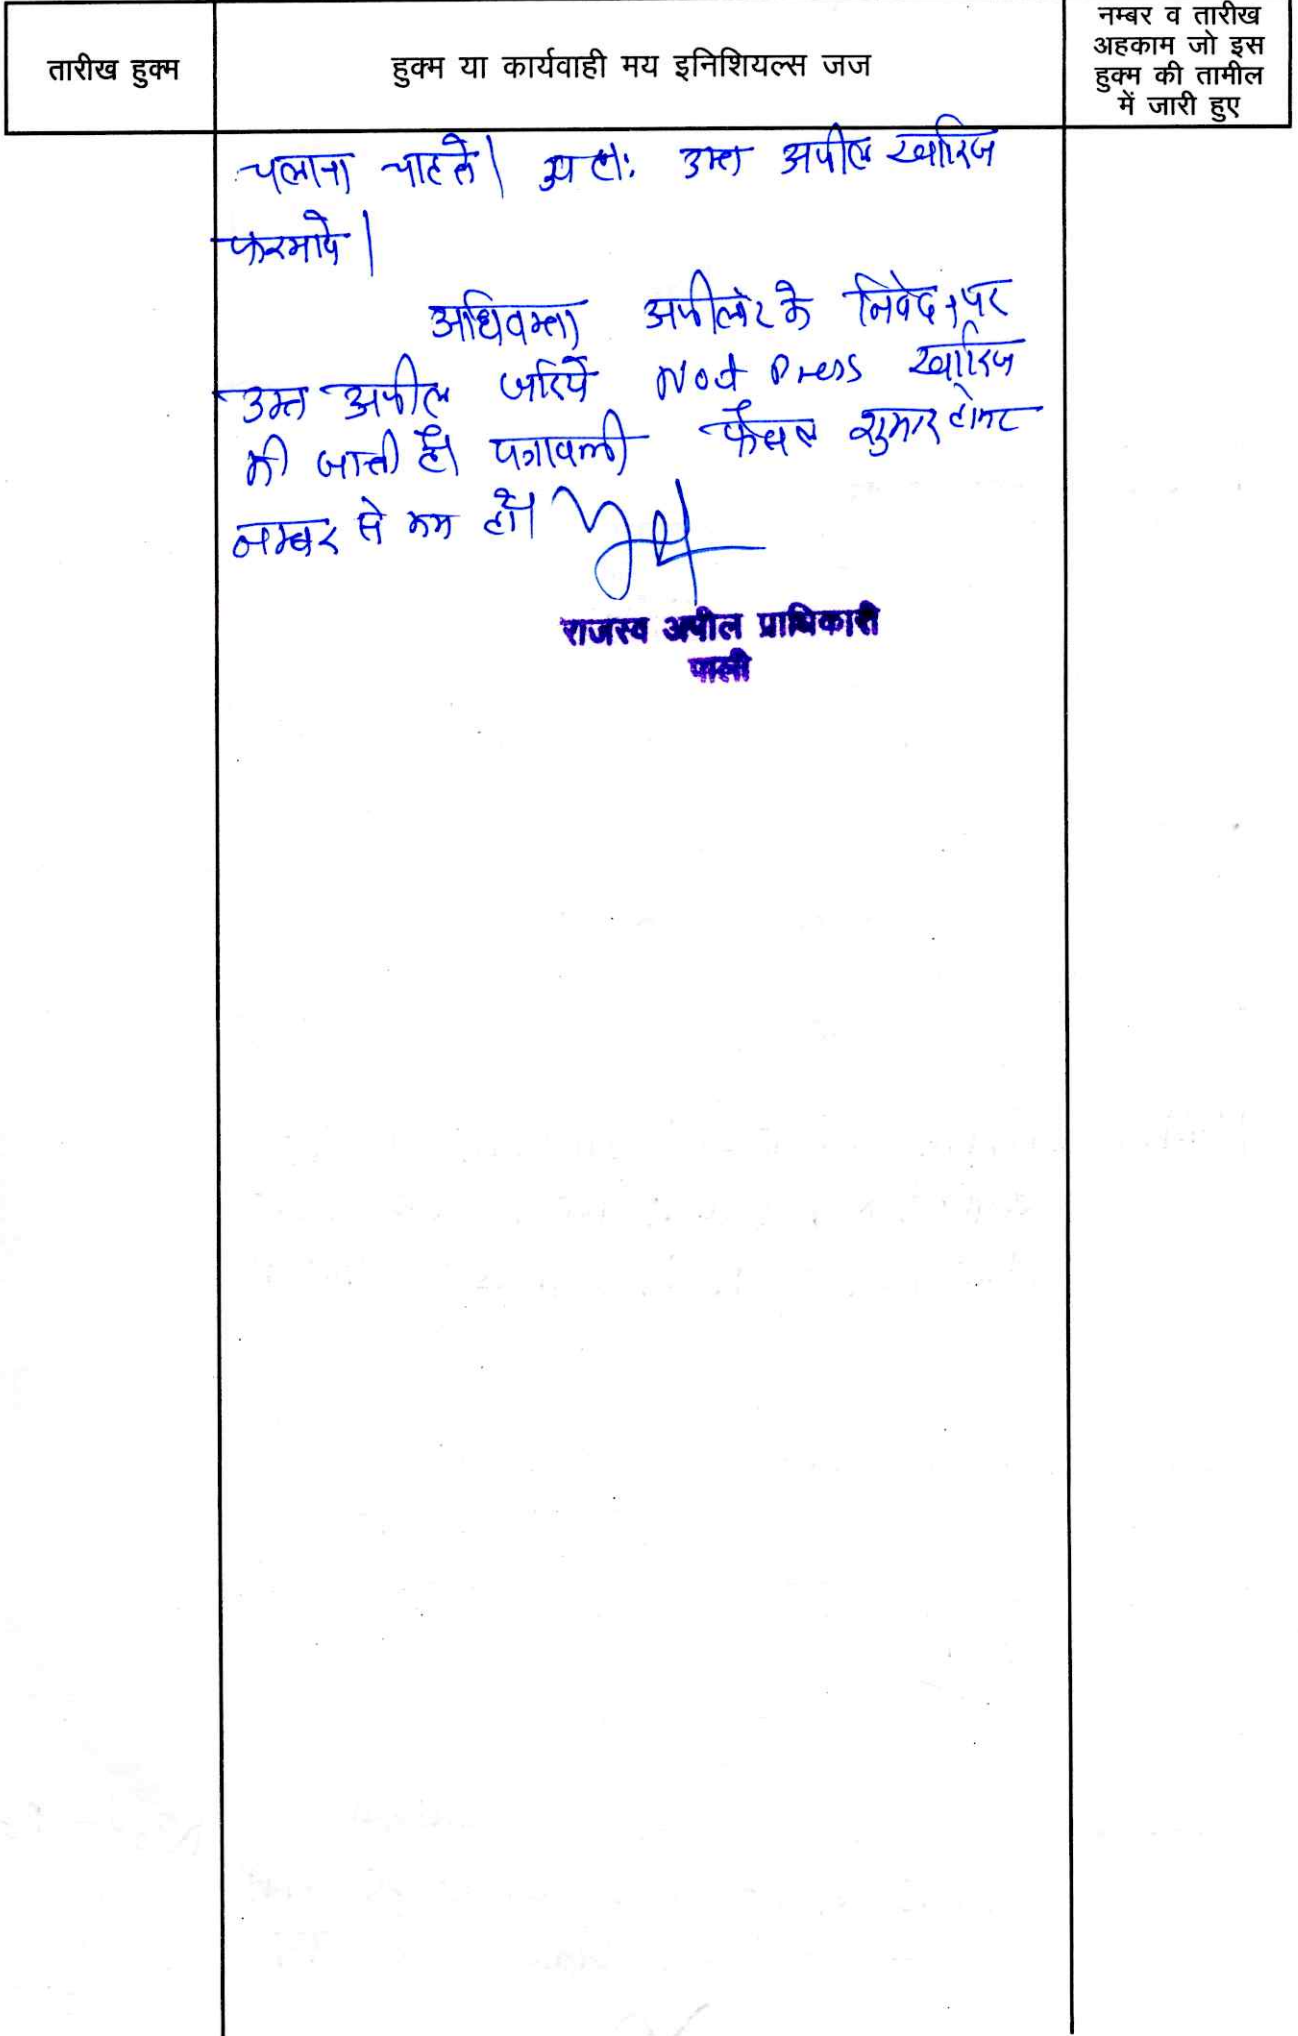 तारीख हुक्म
हुक्म या कार्यवाही मय इनिशियल्स जज
नम्बर व तारीख
अहकाम जो इस
हुक्म की तामील
में जारी हुए
चलाना चाहते। अतः उक्त अपील खारिज
फरमावे।
अधिवक्ता अपीलांट के निवेदन पर
उक्त अपील जरिये Not Press खारिज
की जाती है। पत्रावली फैसल शुमार होकर
नम्बर से कम हो।
राजस्व अपील प्राधिकारी
पाली